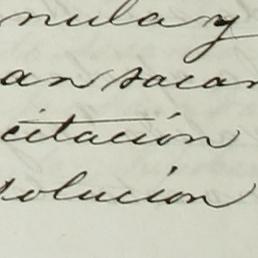 nula y
an sacar
citación
solucion